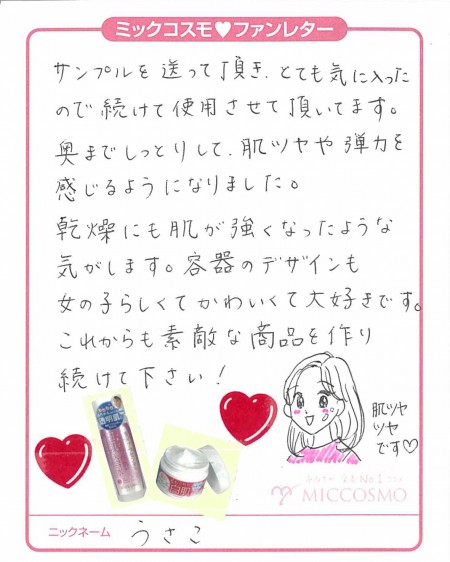 ミックコスモ♥ファンレター
サンプルを送って頂き、とても気に入った
ので続けて使用させて頂いてます。
奥までしっとりして、肌ツヤや弾力を
感じるようになりました。
乾燥にも肌が強くなったような
気がします。容器のデザインも
女の子らしくてかわいくて大好きです。
これからも素敵な商品を作り
続けて下さい!
肌ツヤ
ツヤ
です♡
透明肌
MICCOSMO
ニックネーム うさこ